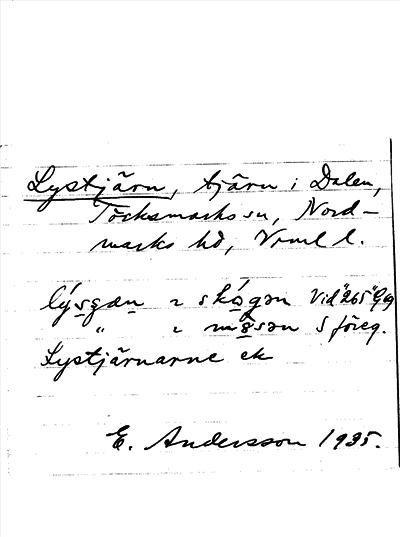 Lystjärn, tjärn i Dalen,
Töcksmarks sn, Nord-
marks hd, Vrml l.
lýsgæn 2 skógən Vid "265" Gg
" 2 mô̱sən S föreg.
Lystjärnarne ek
E. Andersson 1935.